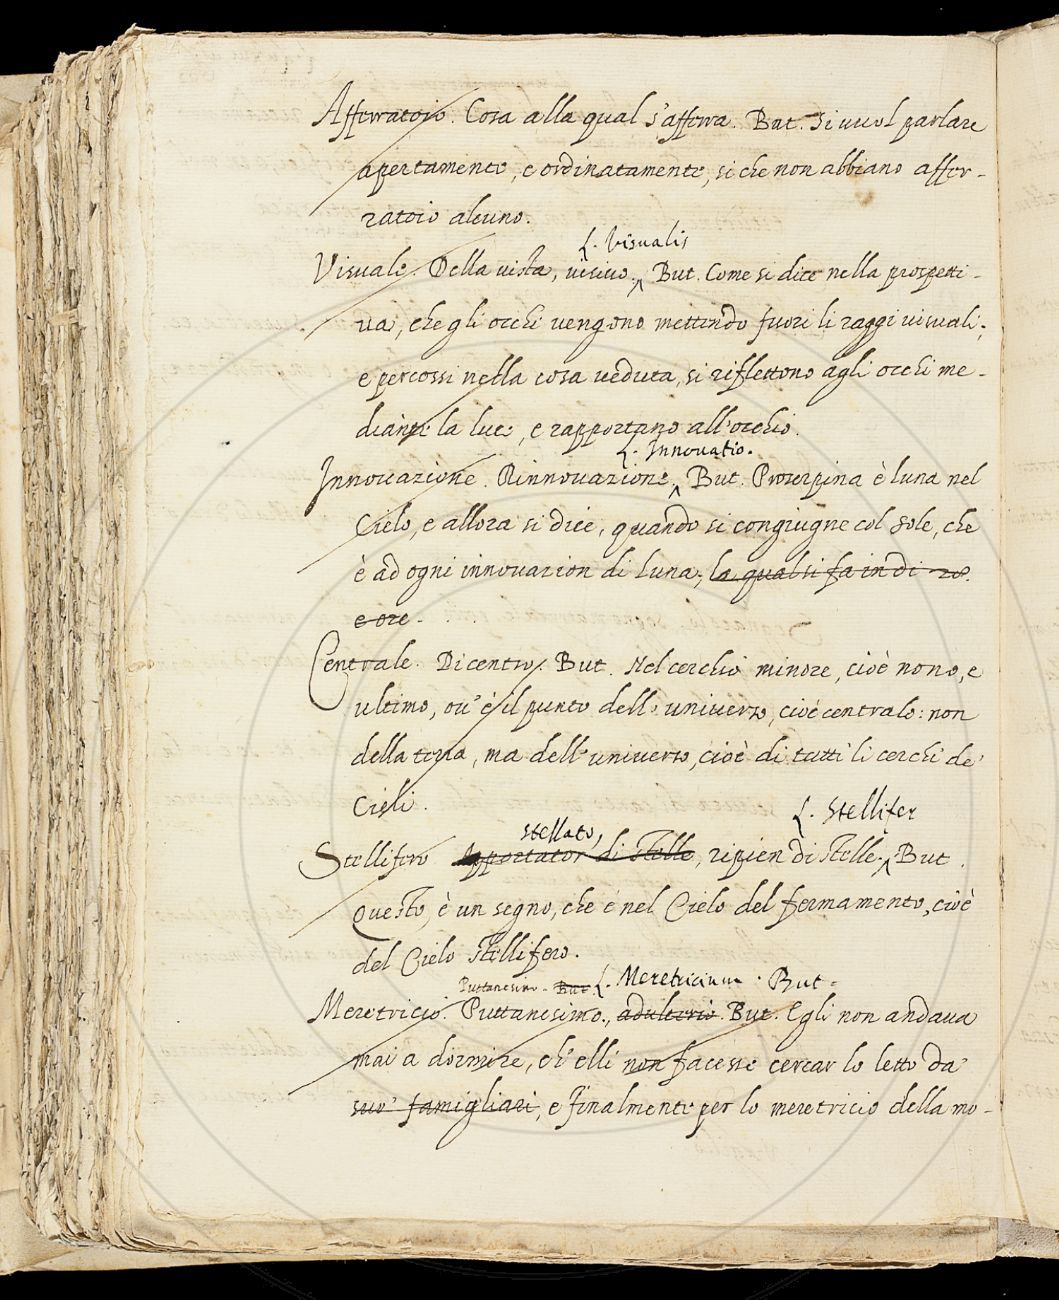 Afferratoio. Cosa alla qual s'afferra. But. Si vuol parlare
apertamente, e ordinatamente, si che non abbiano affer-
ratoio alcuno.
L. Visualis
Visuale. Della vista, visivo. But. Come si dice nella prospetti-
va, che gli occhi vengono mettendo fuori li raggi visuali,
e percossi nella cosa veduta, si riflettono agli occhi me-
diante la luce, e rapportano all'occhio.
L. Innovatio.
Innovazione. Rinnovazione. But. Proserpina è luna nel
Cielo, e allora si dice, quando si congiugne col sole, che
è ad ogni innovazion di luna, la qual si fa in dì 28.
e ore.
Centrale. Di centro. But. Nel cerchio minore, cioè nono, e
ultimo, ov' è il punto dell'universo, cioè centrale: non
della terra, ma dell'universo, cioè di tutti li cerchi de'
Cieli.
L. Stellifer
stellato,
Stellifero Apportator di stelle, ripien di stelle. But.
Questo, è un segno, che è nel Cielo del fermamento, cioè
del Cielo stellifero.
Puttanesimo. But L. Meretricium. But.
Meretricio. Puttanesimo., adulterio. But. Egli non andava
mai a dormire, ch'elli non facesse cercar lo letto da'
suo' famigliari, e finalmente per lo meretricio della mo-